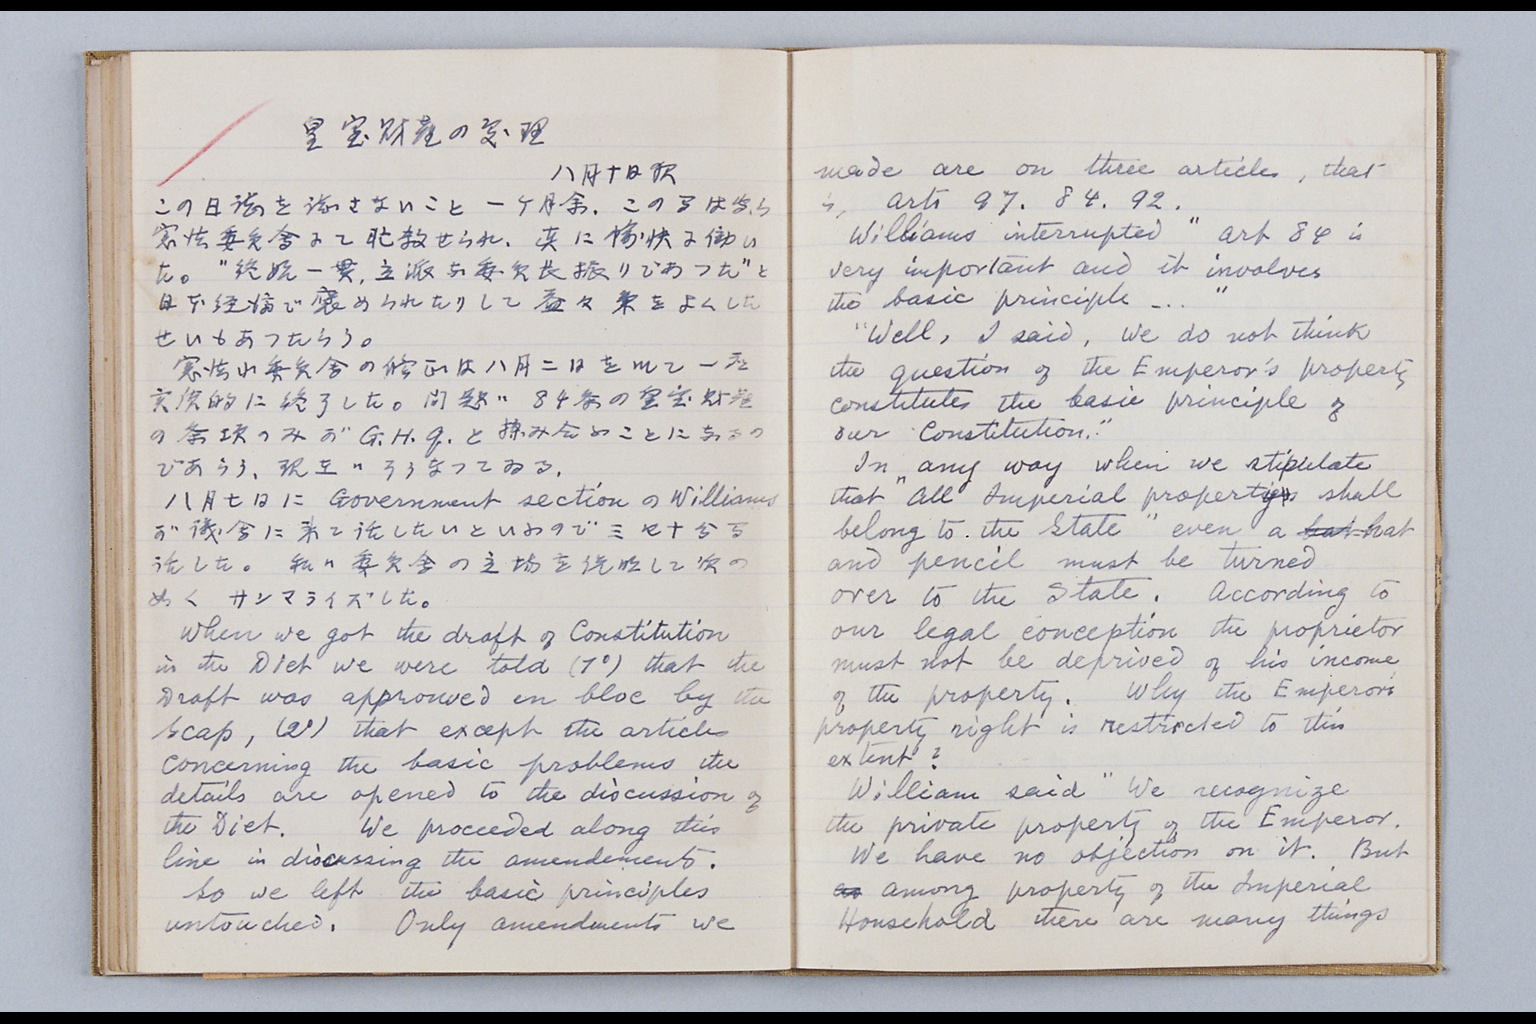 皇室財産の処理
八月十日 記
この日誌を誌さないこと一ケ月余、この間は専ら
憲法委員会にて忙殺せられ、真に愉快に働い
た。"終始一貫、立派な委員長振りであつた"と
日本経済で褒められたりして益々気をよくした
せいもあつたらう。
憲法小委員会の修正は八月二日を以て一応
実質的に終了した。問題ハ84条の皇室財産
の条項のみが G.H.Q.と揉み合ふことにあるの
であらう、現在ハさうなつてゐる。
八月七日に Government section の Williams
が議会に来て話したいといふので三四十分間
話した。私ハ委員会の立場を説明して次の
如く サンマライズした。
When we got the draft of Constitution
in the Diet we were told (1°) that the
Draft was approuved en bloc by the
Scap, (2°) that except the articles
concerning the basic problems the
details are opened to the discussion of
the Diet. We proceeded along this
line in discussing the amendements.
So we left the basic principles
untouched. Only amendments we
made are on three articles, that
is, arts 97. 84. 92.
Williams interrupted " art 84 is
very important and it involves
the basic principle -... "
"Well, I said, we do not think
the question of the Emperor's property
constitutes the basic principle of
our Constitution."
In any way when we stipulate
that "All Imperial property shall
belong to the State" even a hat
and pencil must be turned
over to the State. According to
our legal conception the proprietor
must not be deprived of his income
of the property. Why the Emperor's
property right is restricted to this
extent?
William said " We recognize
the private property of the Emperor.
We have no objection on it. But
among property of the Imperial
Household there are many things